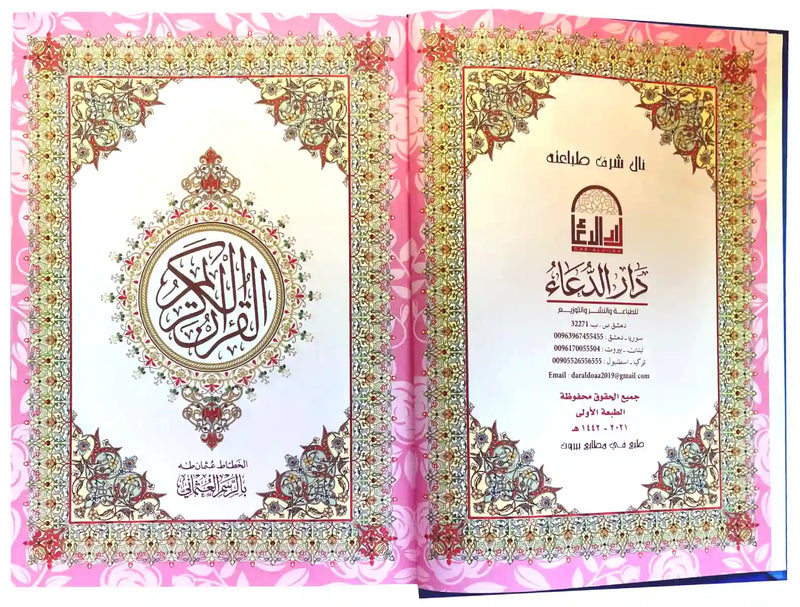 نال شرف طباعته
دار الدعاء
DAR ALDOAA
دَارُ الدُّعَاءُ
للطباعة والنشر والتوزيع
دمشق ص . ب 32271
سوريا - دمشق : 00963967455455
لبنان - بيروت : 0096170055504
تركيا - اسطنبول : 00905526556555
Email : daraldoaa2019@gmail.com
جميع الحقوق محفوظة
الطبعة الأولى
٢٠٢١ - ١٤٤٢ هـ
طبع في مطابع بيروت
القرآن الكريم
الخطاط عثمان طه
بالرسم العثماني